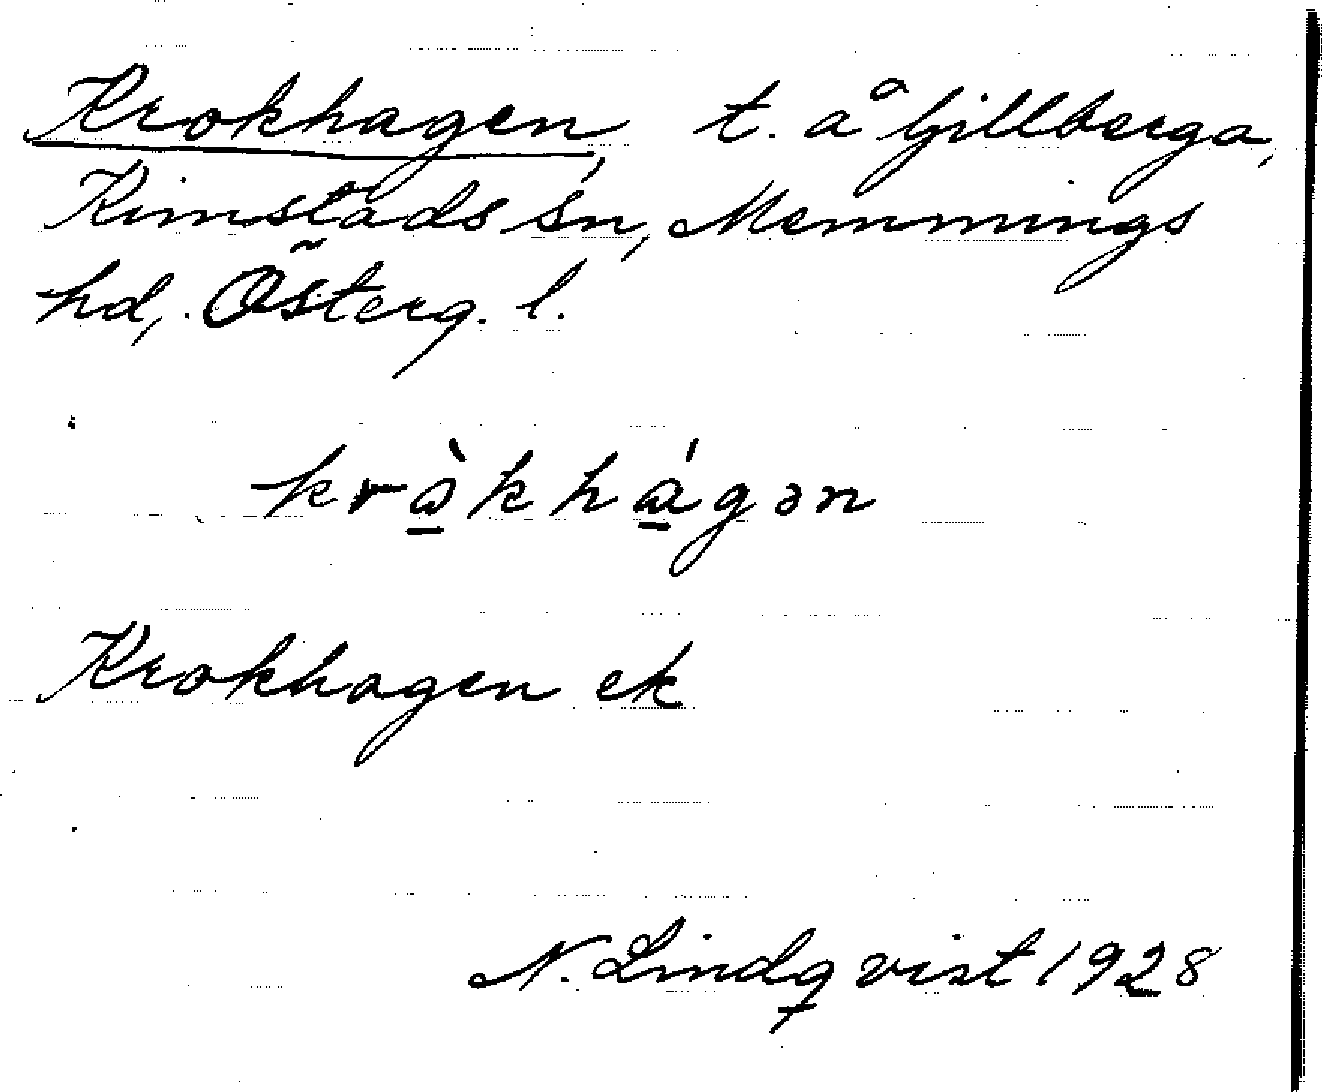 Krokhagen, t. å Gillberga,
Kimstads sn, Memmings
hd, Österg. l.
krὰ̱khά̱gən
Krokhagen ek
N. Lindqvist 1928